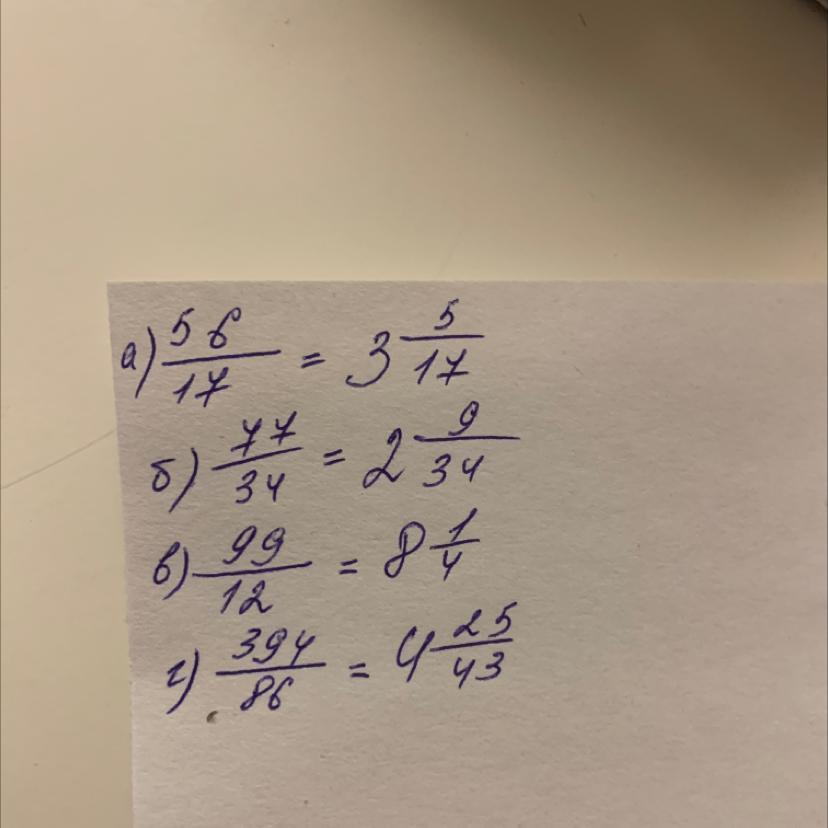 а) 56/17 = 3 5/17
б) 77/34 = 2 9/34
в) 99/12 = 8 1/4
г) 394/86 = 4 25/43